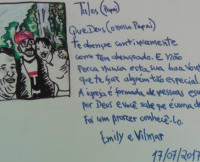 Tales (Papai)
Que Deus (o nosso Papai)
te abençoe continuamente
como tem abençoado. E não
Perca nunca esta sua
que te faz alguém tão especial.
A igreja é formada de pessoas
por Deus e você sabe que é uma d
Foi um prazer conhecê-lo.
Emily e Vilmar
17/07/2017